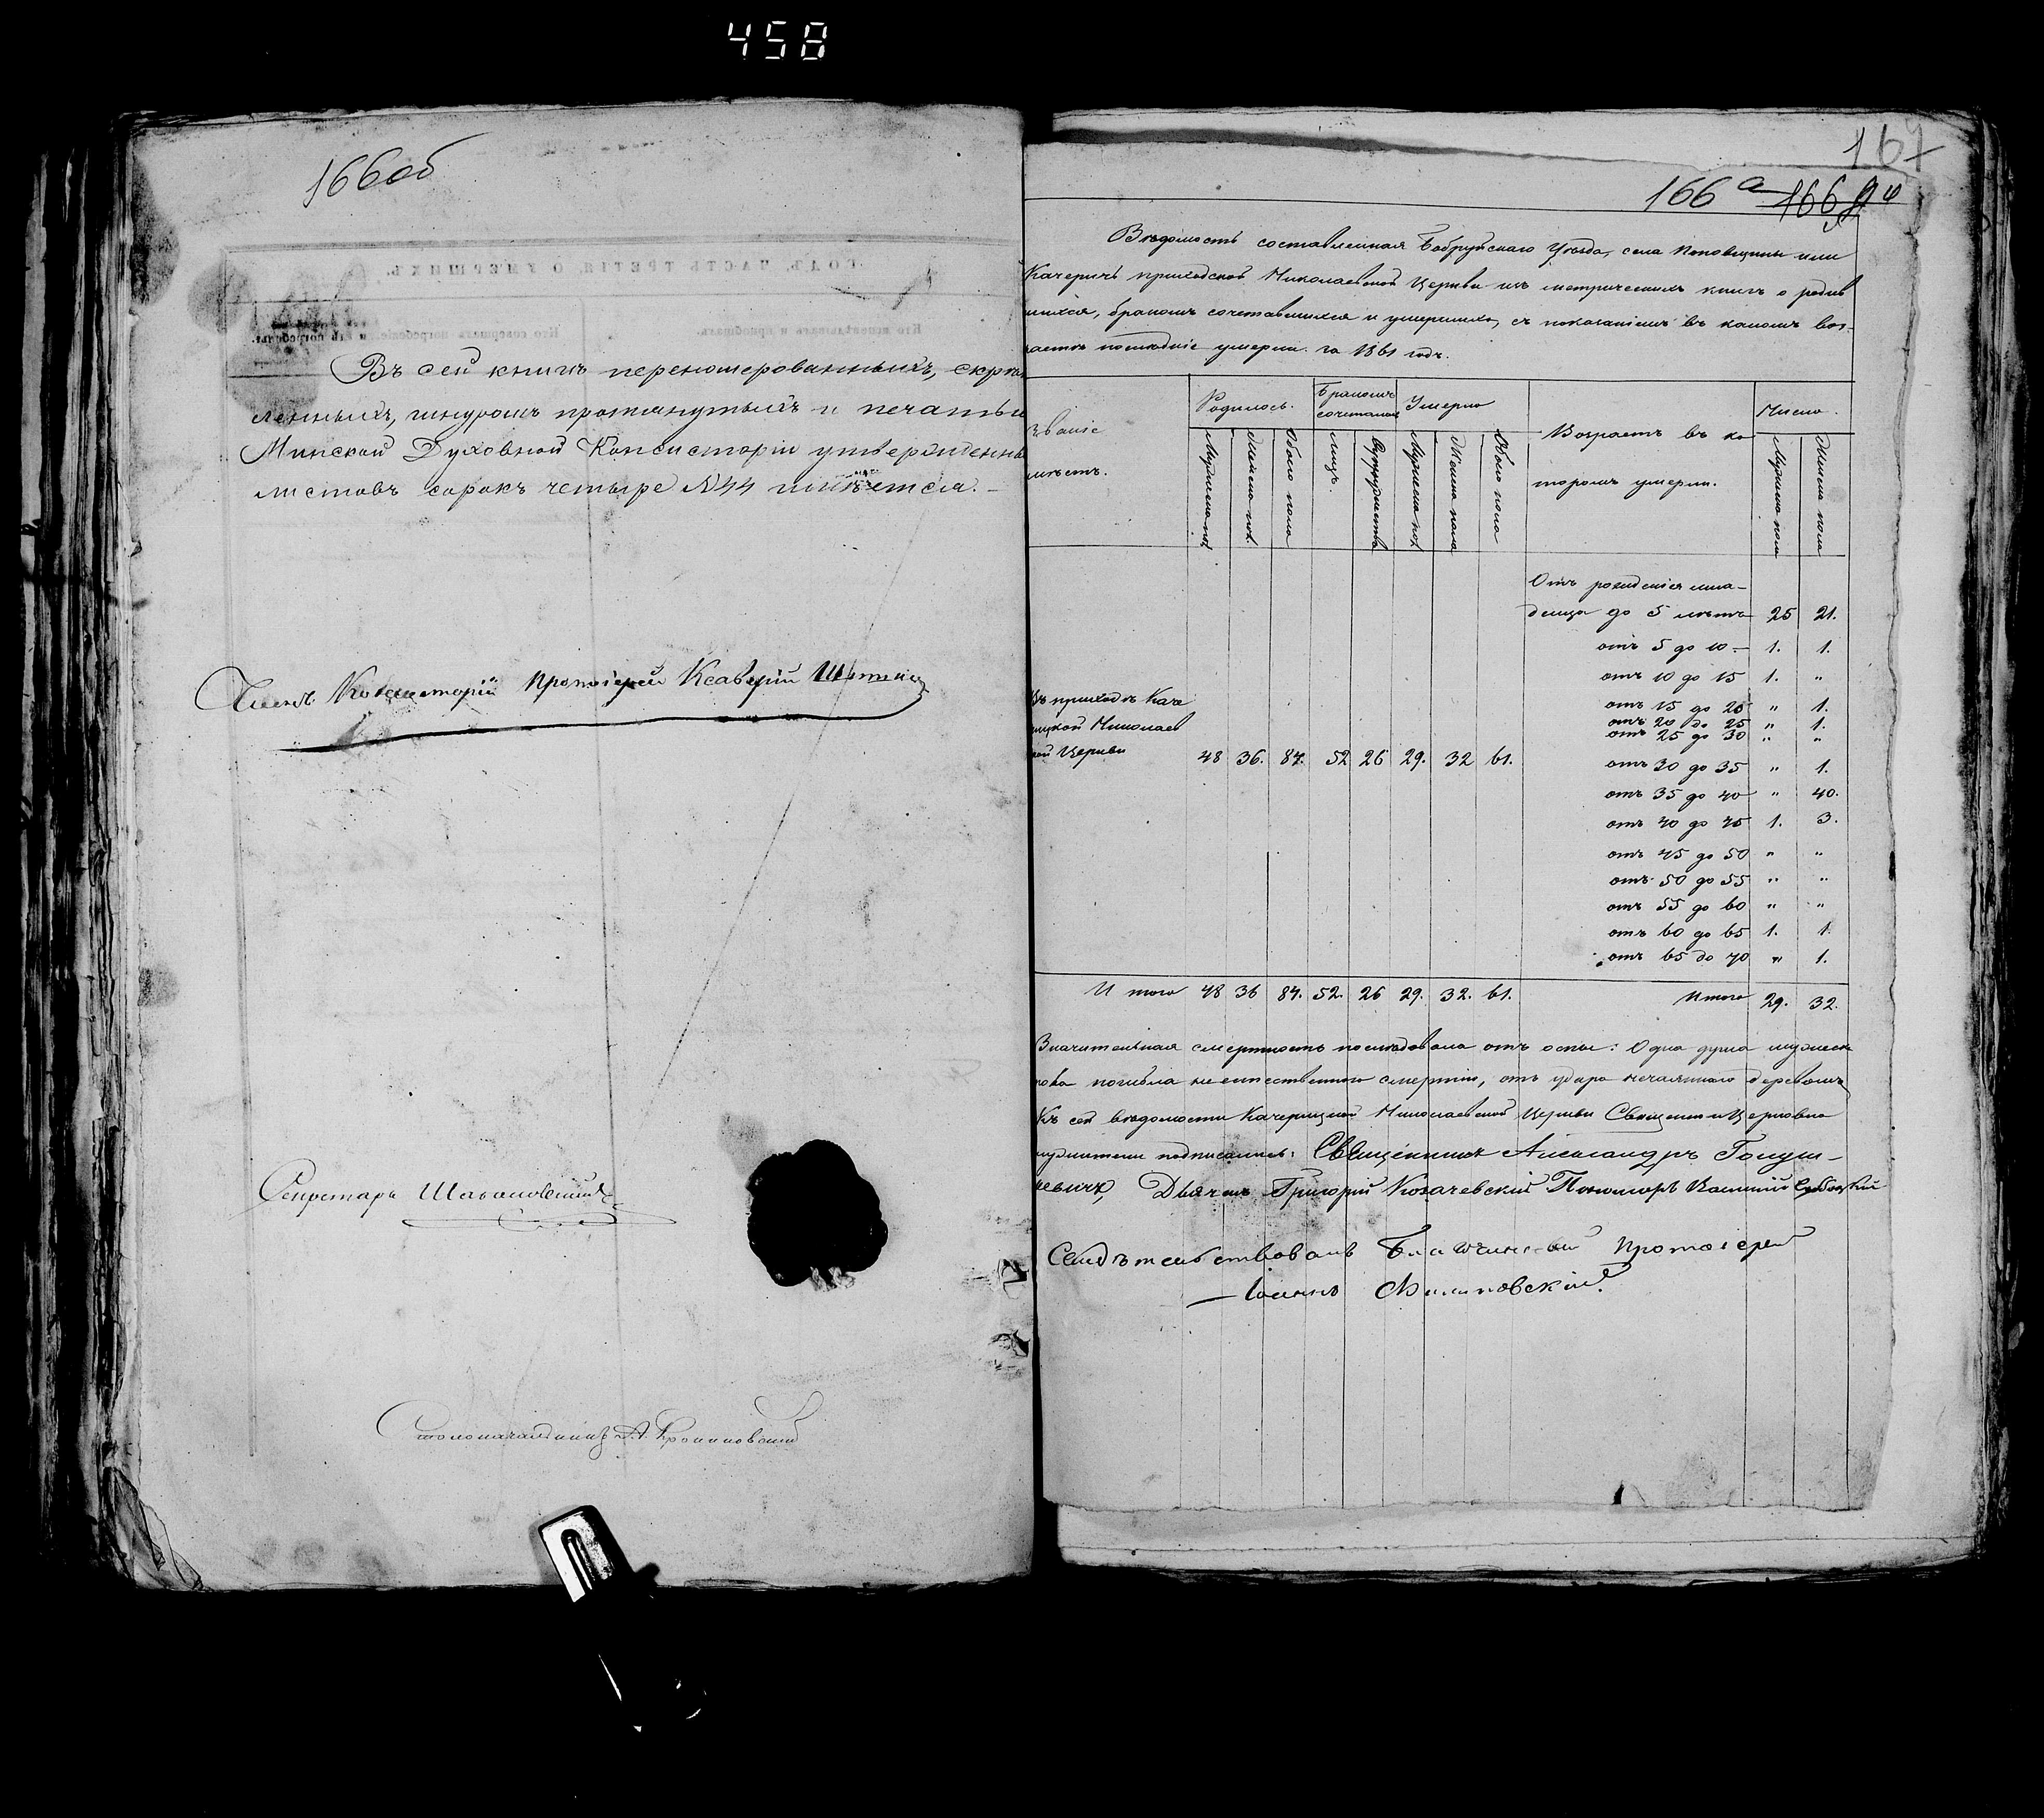 458
166об
Въ сей книгѣ перенумерованныхъ, скрѣп
ленныхъ, шнуромъ протянутыхъ и печатью
Минской Духовной Консисторіи утвержденны
листовъ сорокъ четыре №44 имѣется.
Членъ Консисторіи Протоіерей Ксаверій
Секретарь
Столоначальникъ А.
167
166 а
Вѣдомость составленная Бобруйскаго Уѣзда, села Поповщины или
Качеричъ приходской Николаевской Церкви изъ метрическихъ книгъ о родив
шихся, бракомъ сочетавшихся и умершихъ, съ показаніемъ въ какомъ воз-
растѣ послѣдніе умерли. за 1861 годъ.
званіе мѣстъ.
Родилось. Бракомъ сочеталось Умерло Возрастъ въ ко торомъ умерли. Число.
Мужеска пол Женска пол. Обоего пола Лицъ. Супружествъ Мужеска пол Женска пола Обоего пола Мужеска пола Женска пола
Отъ рожденія мла-
денца до 5 лѣтъ 25 21.
отъ 5 до 10 — 1. 1.
отъ 10 до 15 1. „
отъ 15 до 20 „ 1.
отъ 20 до 25 „ 1.
отъ 25 до 30 „ „
Въ приходѣ Каче
рицкой Николаев
ской Церкви 48 36. 84. 52 26 29. 32 61.
отъ 30 до 35 „ 1.
отъ 35 до 40 „ 40.
отъ 40 до 45 1. 3.
отъ 45 до 50 „ „
отъ 50 до 55 „ „
отъ 55 до 60 „ „
отъ 60 до 65 1. 1.
отъ 65 до 70 „ 1.
Итого 48 36 84. 52. 26 29. 32. 61. Итого 29. 32.
Значительная смертность послѣдовала отъ оспы: Одна душа мужеск
пола погибла неестественною смертію, отъ удара нечаяннаго деревомъ
Къ сей вѣдомости Качерицкой Николаевской Церкви Священно и Церковно
служители подписались: Священникъ Александръ Голуш-
кевичъ, Дьячекъ Григорій Козачевский Пономарь Василій
Свидѣтельствовалъ Благочинный Протоіерей
Іоаннъ